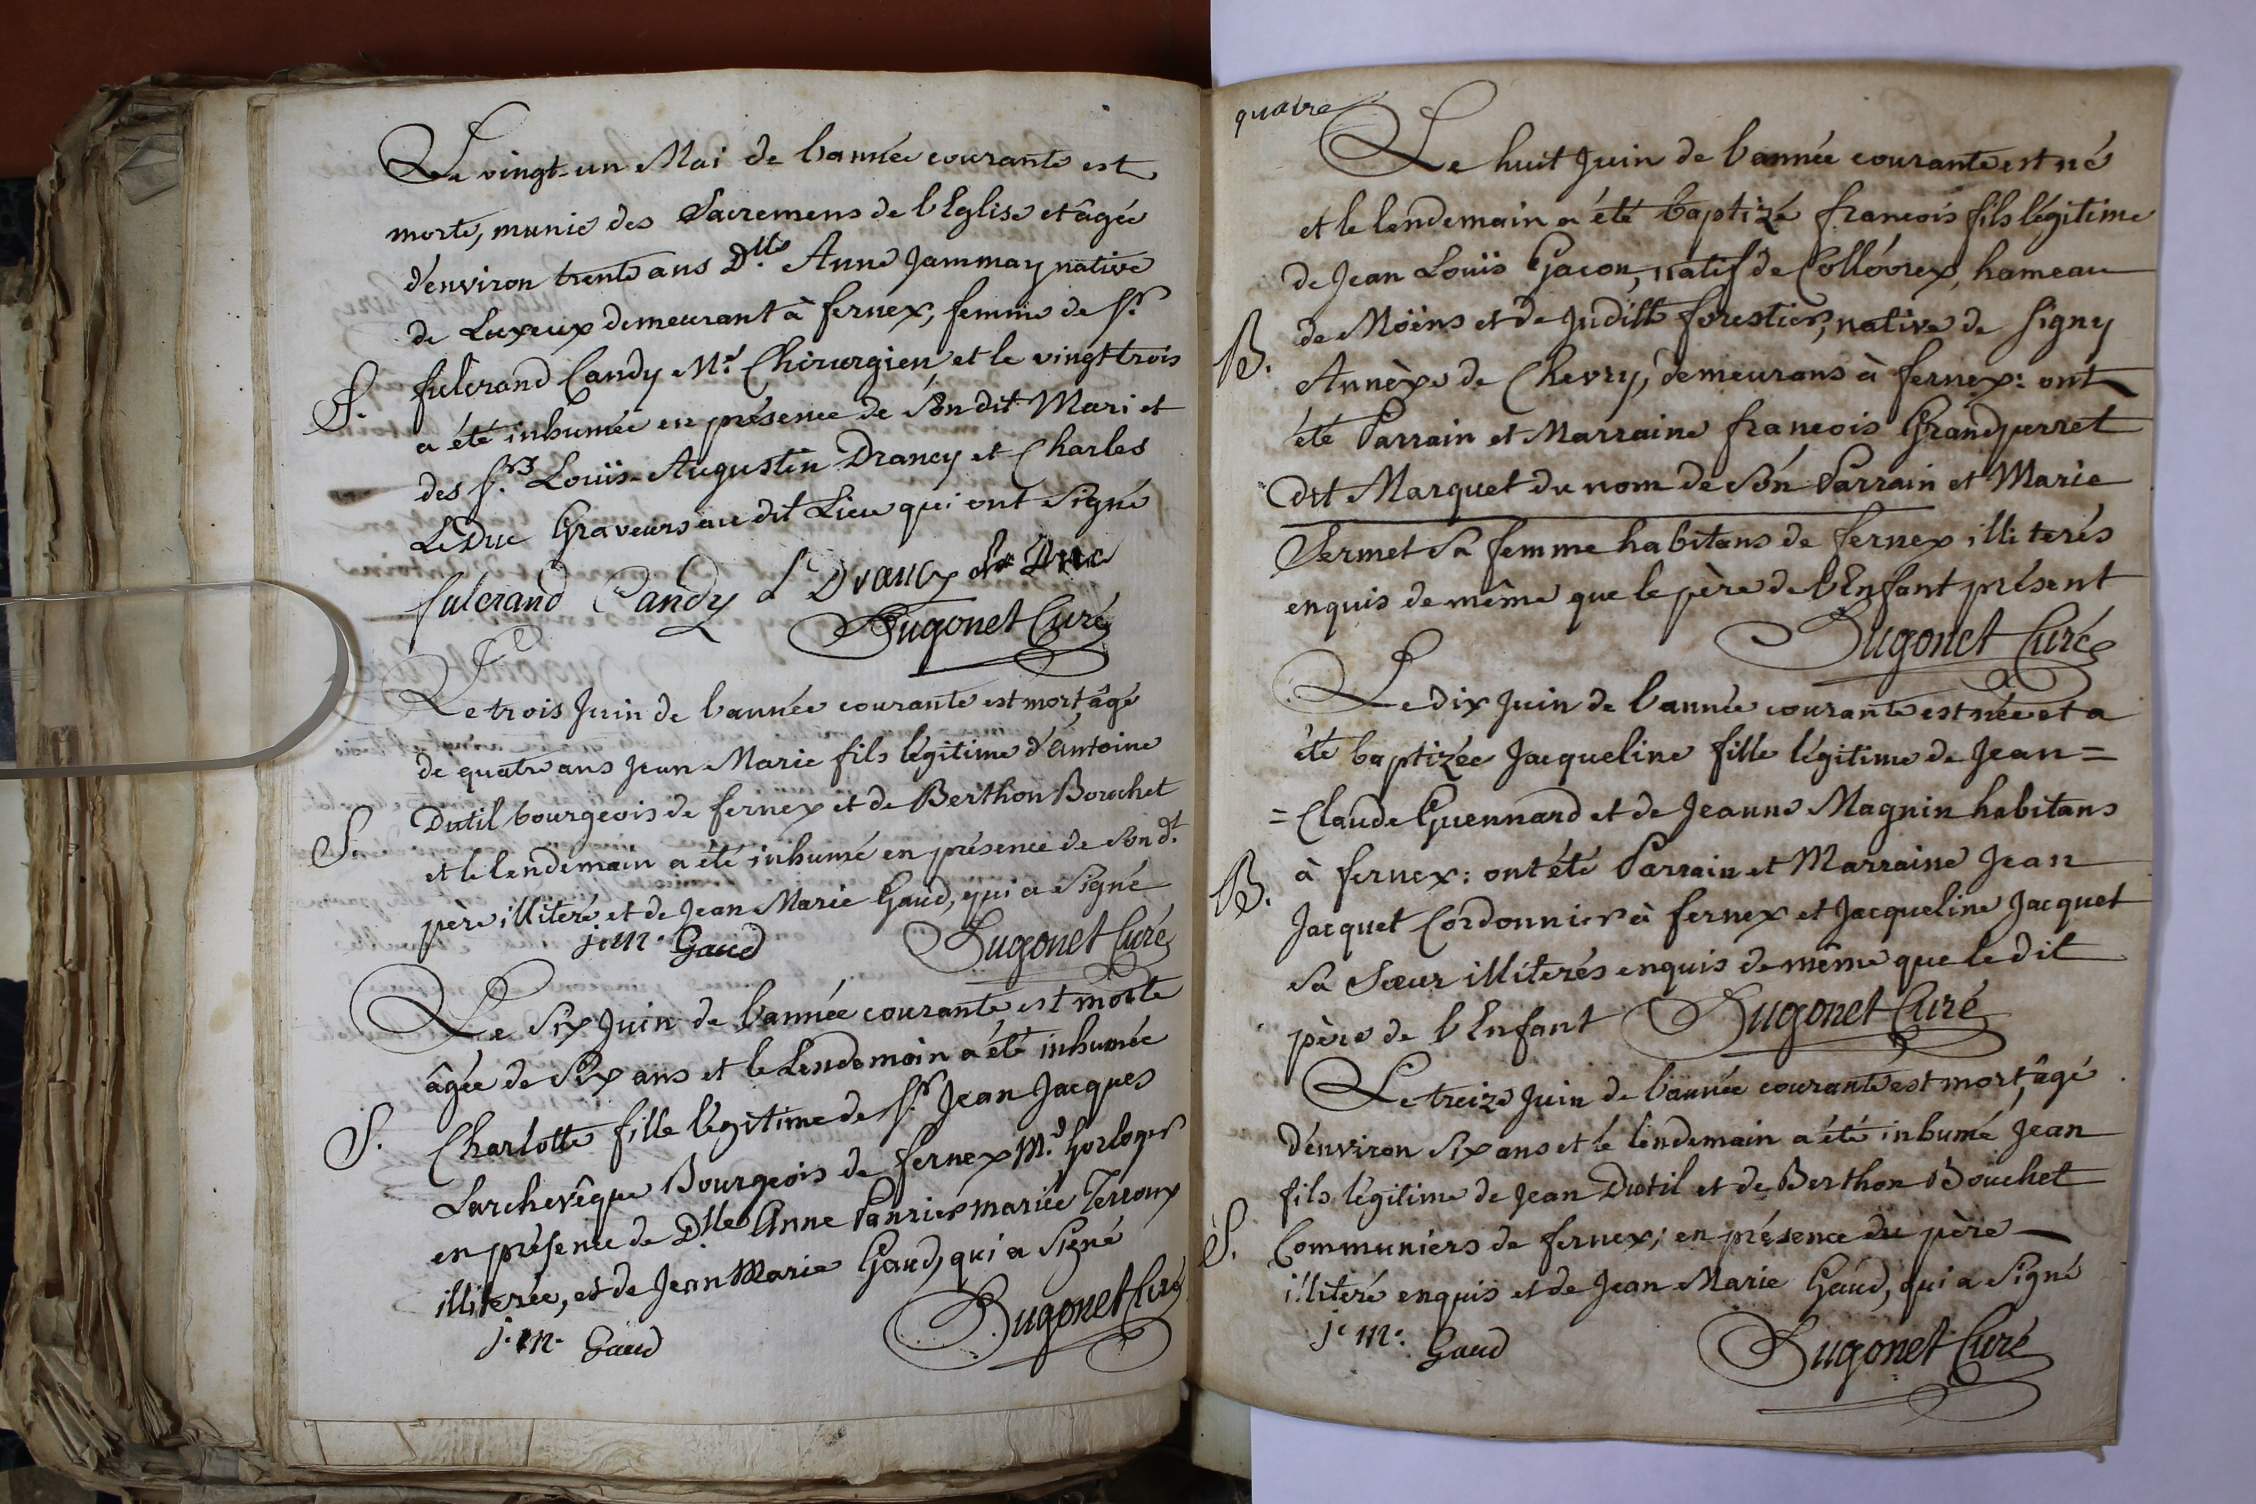 Le vingt-un Mai de l'année courante est
morte, munie des Sacremens de l'Eglise et âgée
d'environ trente ans Dlle Anne Jammay native
de Luxeux demeurant à fernex, femme de Sr.
S. fulcrand Candy Me. Chirurgien et le vingt trois
a été inhumée en présence de Son dit Mari et
des Srs. Louïs-Augustin Drancy et Charles
LeDuc Graveurs au dit Lieu qui ont Signé
fulcrand Candy L Drancy le Duc
Hugonet Curé
Le trois Juin de l'année courante est mort, âgé
de quatre ans Jean Marie fils légitime d'antoine
S. Dutil bourgeois de fernex et de Berthon Bouchet
et le lendemain a été inhumé en présence de Son dt.
père illiteré et de Jean Marie Gaud, qui a Signé
j. m. Gaud Hugonet Curé
Le Six Juin de l'année courante est morte
âgée de Six ans et le Lendemain a été inhumée
S. Charlotte fille légitime de Sr. Jean Jacques
Larchevêque Bourgeois de fernex Md. horloger
en présence de Dlle Anne Panrier mariée Terroux
illiterée, et de Jean Marie Gaud, qui a Signé
j. m. Gaud Hugonet Curé
quatre
Le huit Juin de l'année courante est né
et le lendemain a été baptizé francois fils légitime
de Jean Louïs Gacon, natif de Collovrex, hameau
B. de Moëns et de Judith forestier, native de Signy
Annèxe de Chevry, demeurans à fernex: ont
été Parrain et Marraine francois Grandperret
dit Marquet du nom de Són Parrain et Marie
Sermet Sa femme habitans de fernex illiterés
enquis de même que le père de l'Enfant présent
Hugonet Curé
Le dix Juin de l'année courante est née et a
été baptizée Jacqueline fille légitime de Jean=
=Claude Guennard et de Jeanne Magnin habitans
B. à fernex: ont été Parrain et Marraine Jean
Jacquet Cordonnier à fernex et Jacqueline Jacquet
Sa Sœur illiterés enquis de même que le dit
père de l'Enfant Hugonet Curé
Le treize Juin de l'année courante est mort, âgé
d'environ Six ans et le lendemain a été inhumé Jean
fils légitime de Jean Dutil et de Berthon Bouchet
S. Communiers de fernex; en présence du père
illiteré enquis et de Jean Marie Gaud, qui a Signé
j. m. Gaud Hugonet Curé